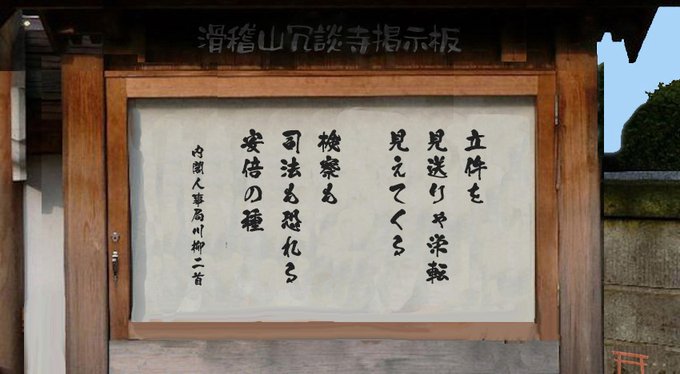 滑稽山冗談寺掲示板
立件を
見送りゃ栄転
見えてくる
検察も
司法も恐れる
安倍の種
内閣人事局川柳二首